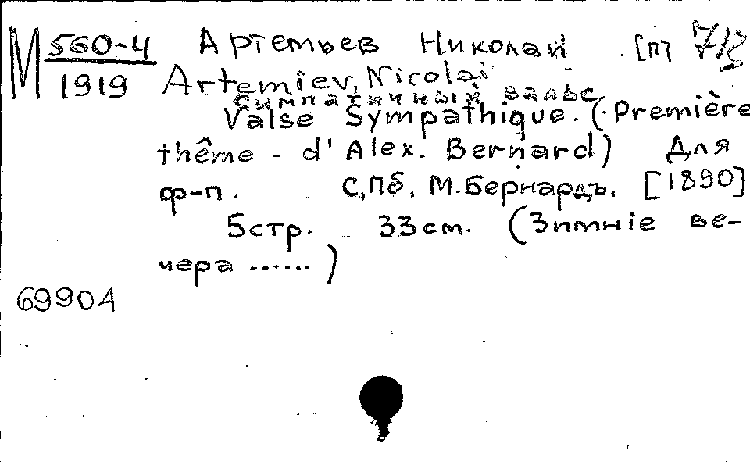 М 560-4 Артемьев Николай [п] 713
1919 Artemiev, Nicolai
Симпатичный вальс
Valse Sympathique. (Première
thême - d'Alex. Bernard) Для
ф-п. С,Пб, М.Бернардъ. [1890]
5стр. 33см. (Зимніе ве-
чера ......)
6990А